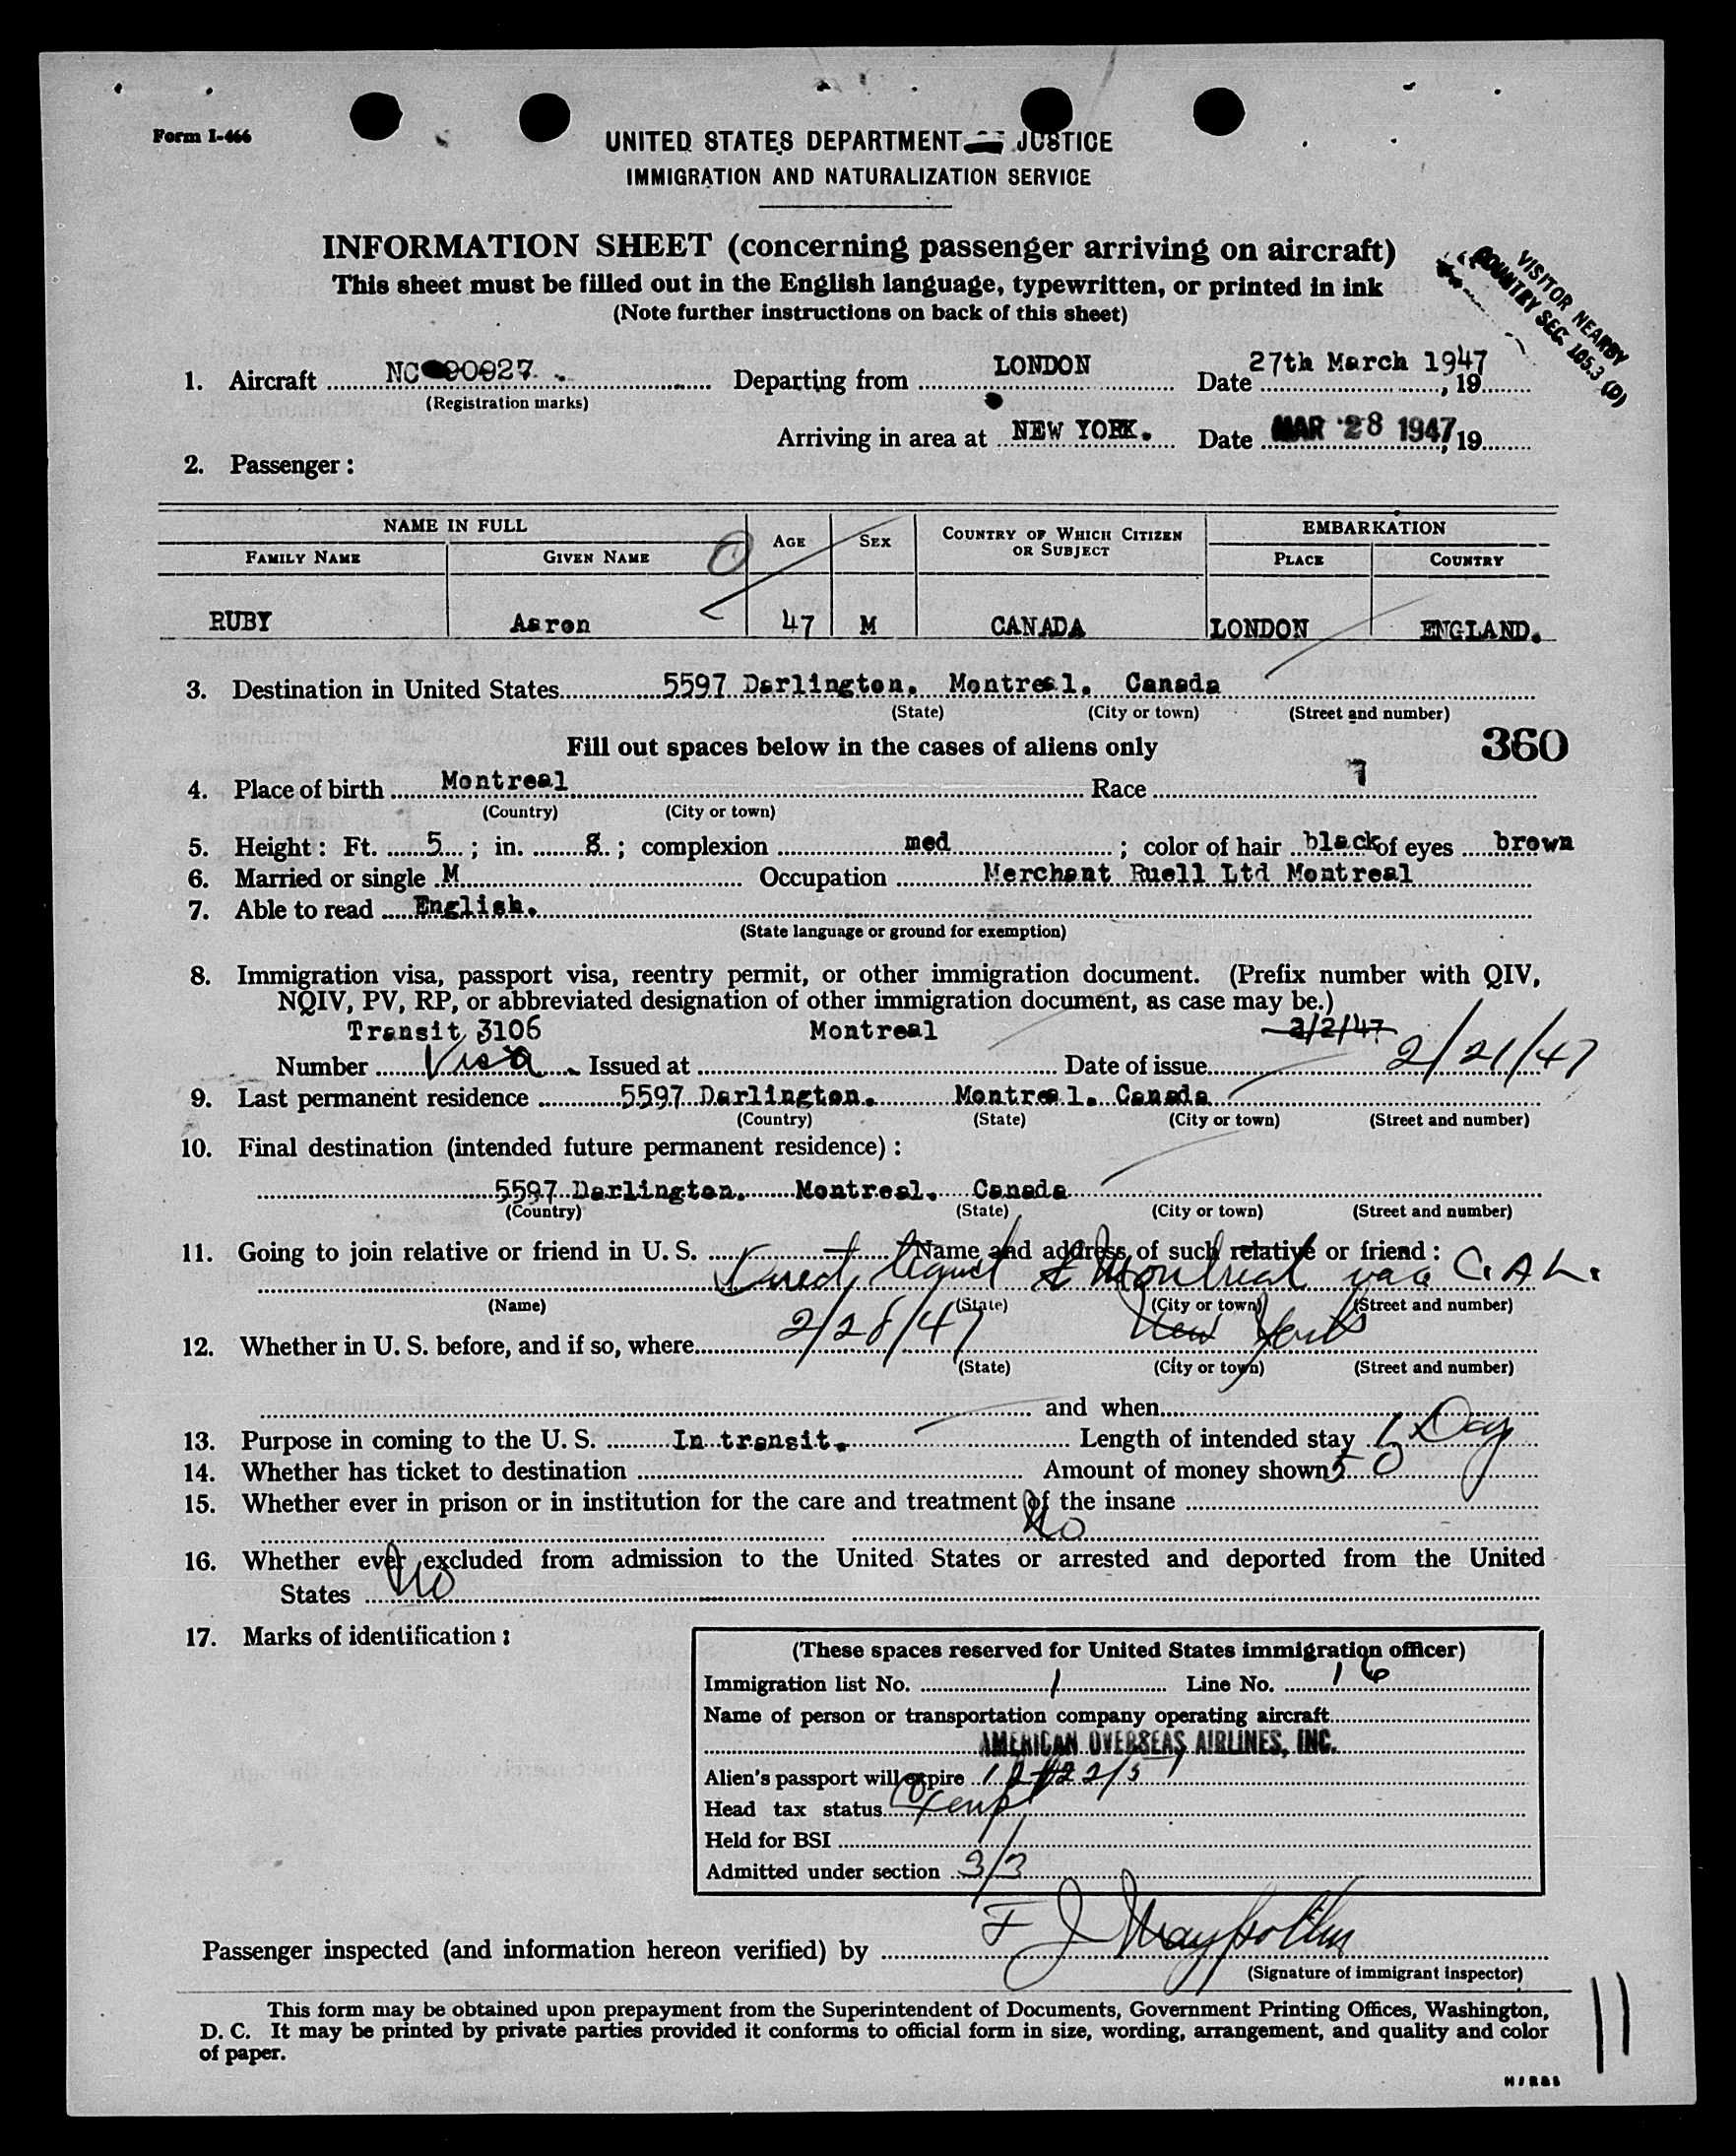 Form I-466
UNITED STATES DEPARTMENT OF JUSTICE
IMMIGRATION AND NATURALIZATION SERVICE
INFORMATION SHEET (concerning passenger arriving on aircraft)
This sheet must be filled out in the English language, typewritten, or printed in ink
(Note further instructions on back of this sheet)
VISITOR NEARBY
COUNTRY SEC. 105.3 (D)
1. Aircraft NC 90927. Departing from LONDON Date 27th March 1947, 19
(Registration marks)
Arriving in area at NEW YORK. Date MAR 28 1947, 19
2. Passenger:
NAME IN FULL AGE SEX COUNTRY OF WHICH CITIZEN OR SUBJECT EMBARKATION
FAMILY NAME GIVEN NAME PLACE COUNTRY
RUBY Aaron 47 M CANADA LONDON ENGLAND.
3. Destination in United States 5597 Darlington. Montreal. Canada
(State) (City or town) (Street and number)
Fill out spaces below in the cases of aliens only 360
4. Place of birth Montreal Race 7
(Country) (City or town)
5. Height: Ft. 5; in. 8; complexion med; color of hair black of eyes brown
6. Married or single M Occupation Merchant Ruell Ltd Montreal
7. Able to read English.
(State language or ground for exemption)
8. Immigration visa, passport visa, reentry permit, or other immigration document. (Prefix number with QIV,
NQIV, PV, RP, or abbreviated designation of other immigration document, as case may be.)
Transit 3106 Montreal 2/2/47
Number Visa Issued at Date of issue 2/21/47
9. Last permanent residence 5597 Darlington. Montreal. Canada
(Country) (State) (City or town) (Street and number)
10. Final destination (intended future permanent residence):
5597 Darlington. Montreal. Canada
(Country) (State) (City or town) (Street and number)
11. Going to join relative or friend in U. S. Name and address of such relative or friend:
Direct to Montreal via C.A L.
(Name) (State) (City or town) (Street and number)
12. Whether in U. S. before, and if so, where 2/28/47 New York
(State) (City or town) (Street and number)
and when
13. Purpose in coming to the U. S. In transit. Length of intended stay Day
14. Whether has ticket to destination Amount of money shown 50
15. Whether ever in prison or in institution for the care and treatment of the insane
No
16. Whether ever excluded from admission to the United States or arrested and deported from the United
States No
17. Marks of identification:
(These spaces reserved for United States immigration officer)
Immigration list No. 1 Line No. 16
Name of person or transportation company operating aircraft
AMERICAN OVERSEAS AIRLINES, INC.
Alien's passport will expire
Head tax status Exempt
Held for BSI
Admitted under section 3/3
Passenger inspected (and information hereon verified) by F J
(Signature of immigrant inspector)
This form may be obtained upon prepayment from the Superintendent of Documents, Government Printing Offices, Washington,
D. C. It may be printed by private parties provided it conforms to official form in size, wording, arrangement, and quality and color
of paper.
11